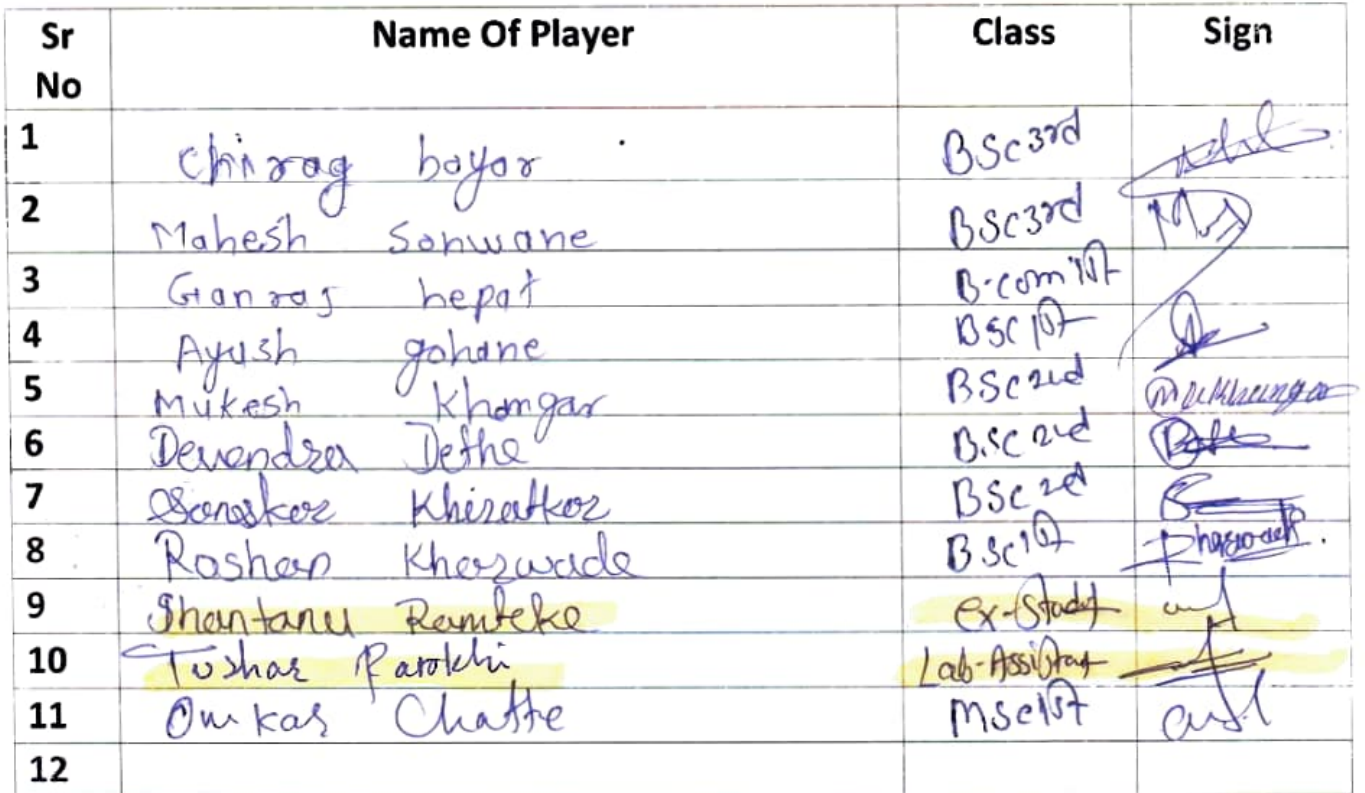 Sr No Name Of Player Class Sign
1 Chirag boyar BSc 3rd
2 Mahesh Sonwane BSc 3rd
3 Ganraj hepat B.com 1st
4 Ayush gohane BSc 1st
5 Mukesh Khamgar BSc 2nd
6 Devendra Dethe B.Sc 2nd
7 Sanskar Khiratkar BSc 2nd
8 Roshan Kharwade BSc 1st
9 Shantanu Ramteke ex-Studt
10 Tushar Parokhi Lab-Assistant
11 Omkar Chatte MSc 1st
12